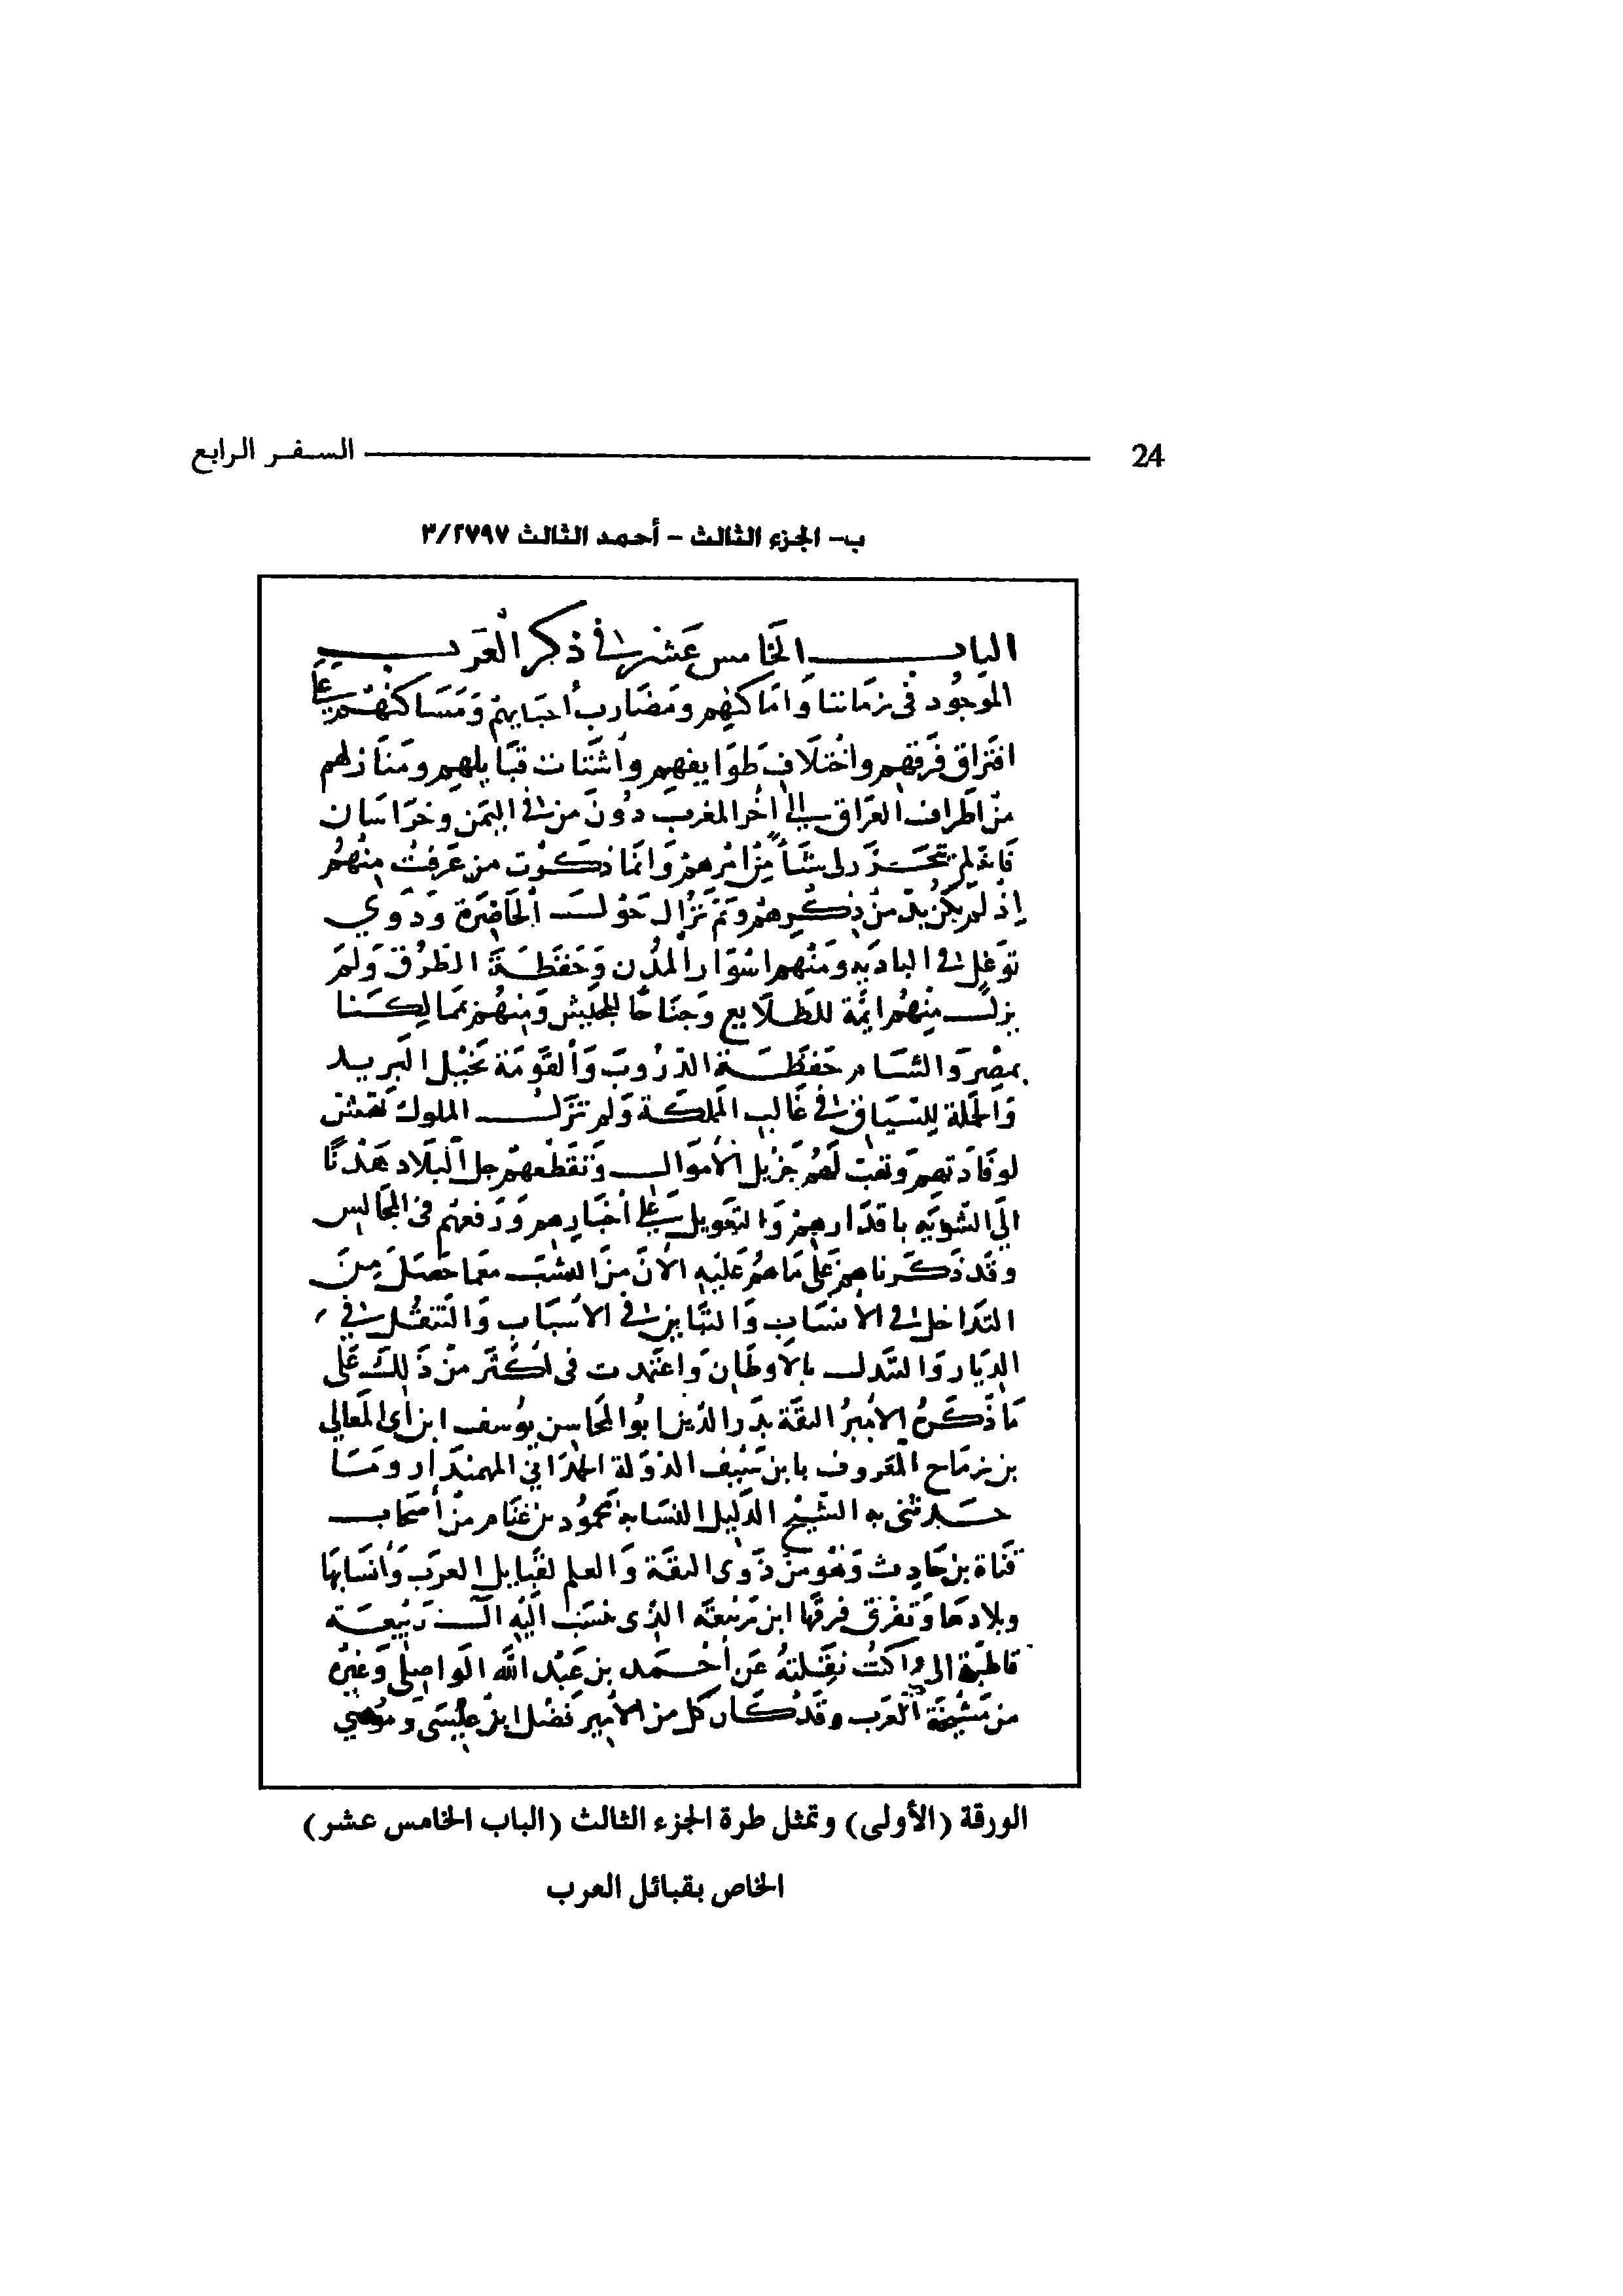 24 السفر الرابع
ب- الجزء الثالث - أحمد الثالث ٣/٢٧٩٧
الباب الخامس عشر في ذكر العرب
الموجود في زماننا وأماكنهم ومضارب أحيايهم ومساكنهم على
افتراق فرقهم واختلاف طوايفهم وأشتات قبايلهم ومنازلهم
من أطراف العراق إلى آخر المغرب دون من في اليمن وخراسان
فإنه لم يتحرر لي شأ من أمرهم وإنما ذكرت من عرفت منهم
إذ لم يكن بد من ذكرهم وهم نزال حول الحاضرة وذوي
توغل في البادية ومنهم أسوار المدن وحفظة الطرق ولم
يزل منهم أيمة للطلايع وجناحا للجيش ومنهم بممالكنا
بمصر والشام حفظة الدروب والقومة بخيل البريد
والحملة للسياق في غالب المملكة ولم تزل الملوك تهش
لوفادتهم وتهب لهم جزيل الأموال وتقطعهم جل البلاد هذا
إلى التنويه باقدارهم والتعويل على أخبارهم ورفعهم في المجالس
وقد ذكرناهم على ما هم عليه الآن من النسب مع ما حصل من
التداخل في الأنساب والتباين في الأسباب والتنقل في
الديار والتبدل بالأوطان واعتمدت في أكثر من ذلك على
ما ذكره الأمير الثقة بدر الدين أبو المحاسن يوسف ابن أبي المعالي
بن زماح المعروف بابن سيف الدولة الحمداني المهمندار وما
حدثني به الشيخ الدليل النسابة محمود بن غنام من أصحاب
قناة بن حارث وهو من ذوي الثقة والعلم لقبايل العرب وأنسابها
وبلادها وتفرق فرقها ابن ربيعة الذي ينسب إليه آل ربيعة
قاطبة إلى ما كنت نقلته عن أحمد بن عبد الله الواصلي وغيره
من مشيخة العرب وقد كان كل من الأمير فضل ابن عيسى وموسى
الورقة (الأولى) وتمثل طرة الجزء الثالث (الباب الخامس عشر)
الخاص بقبائل العرب